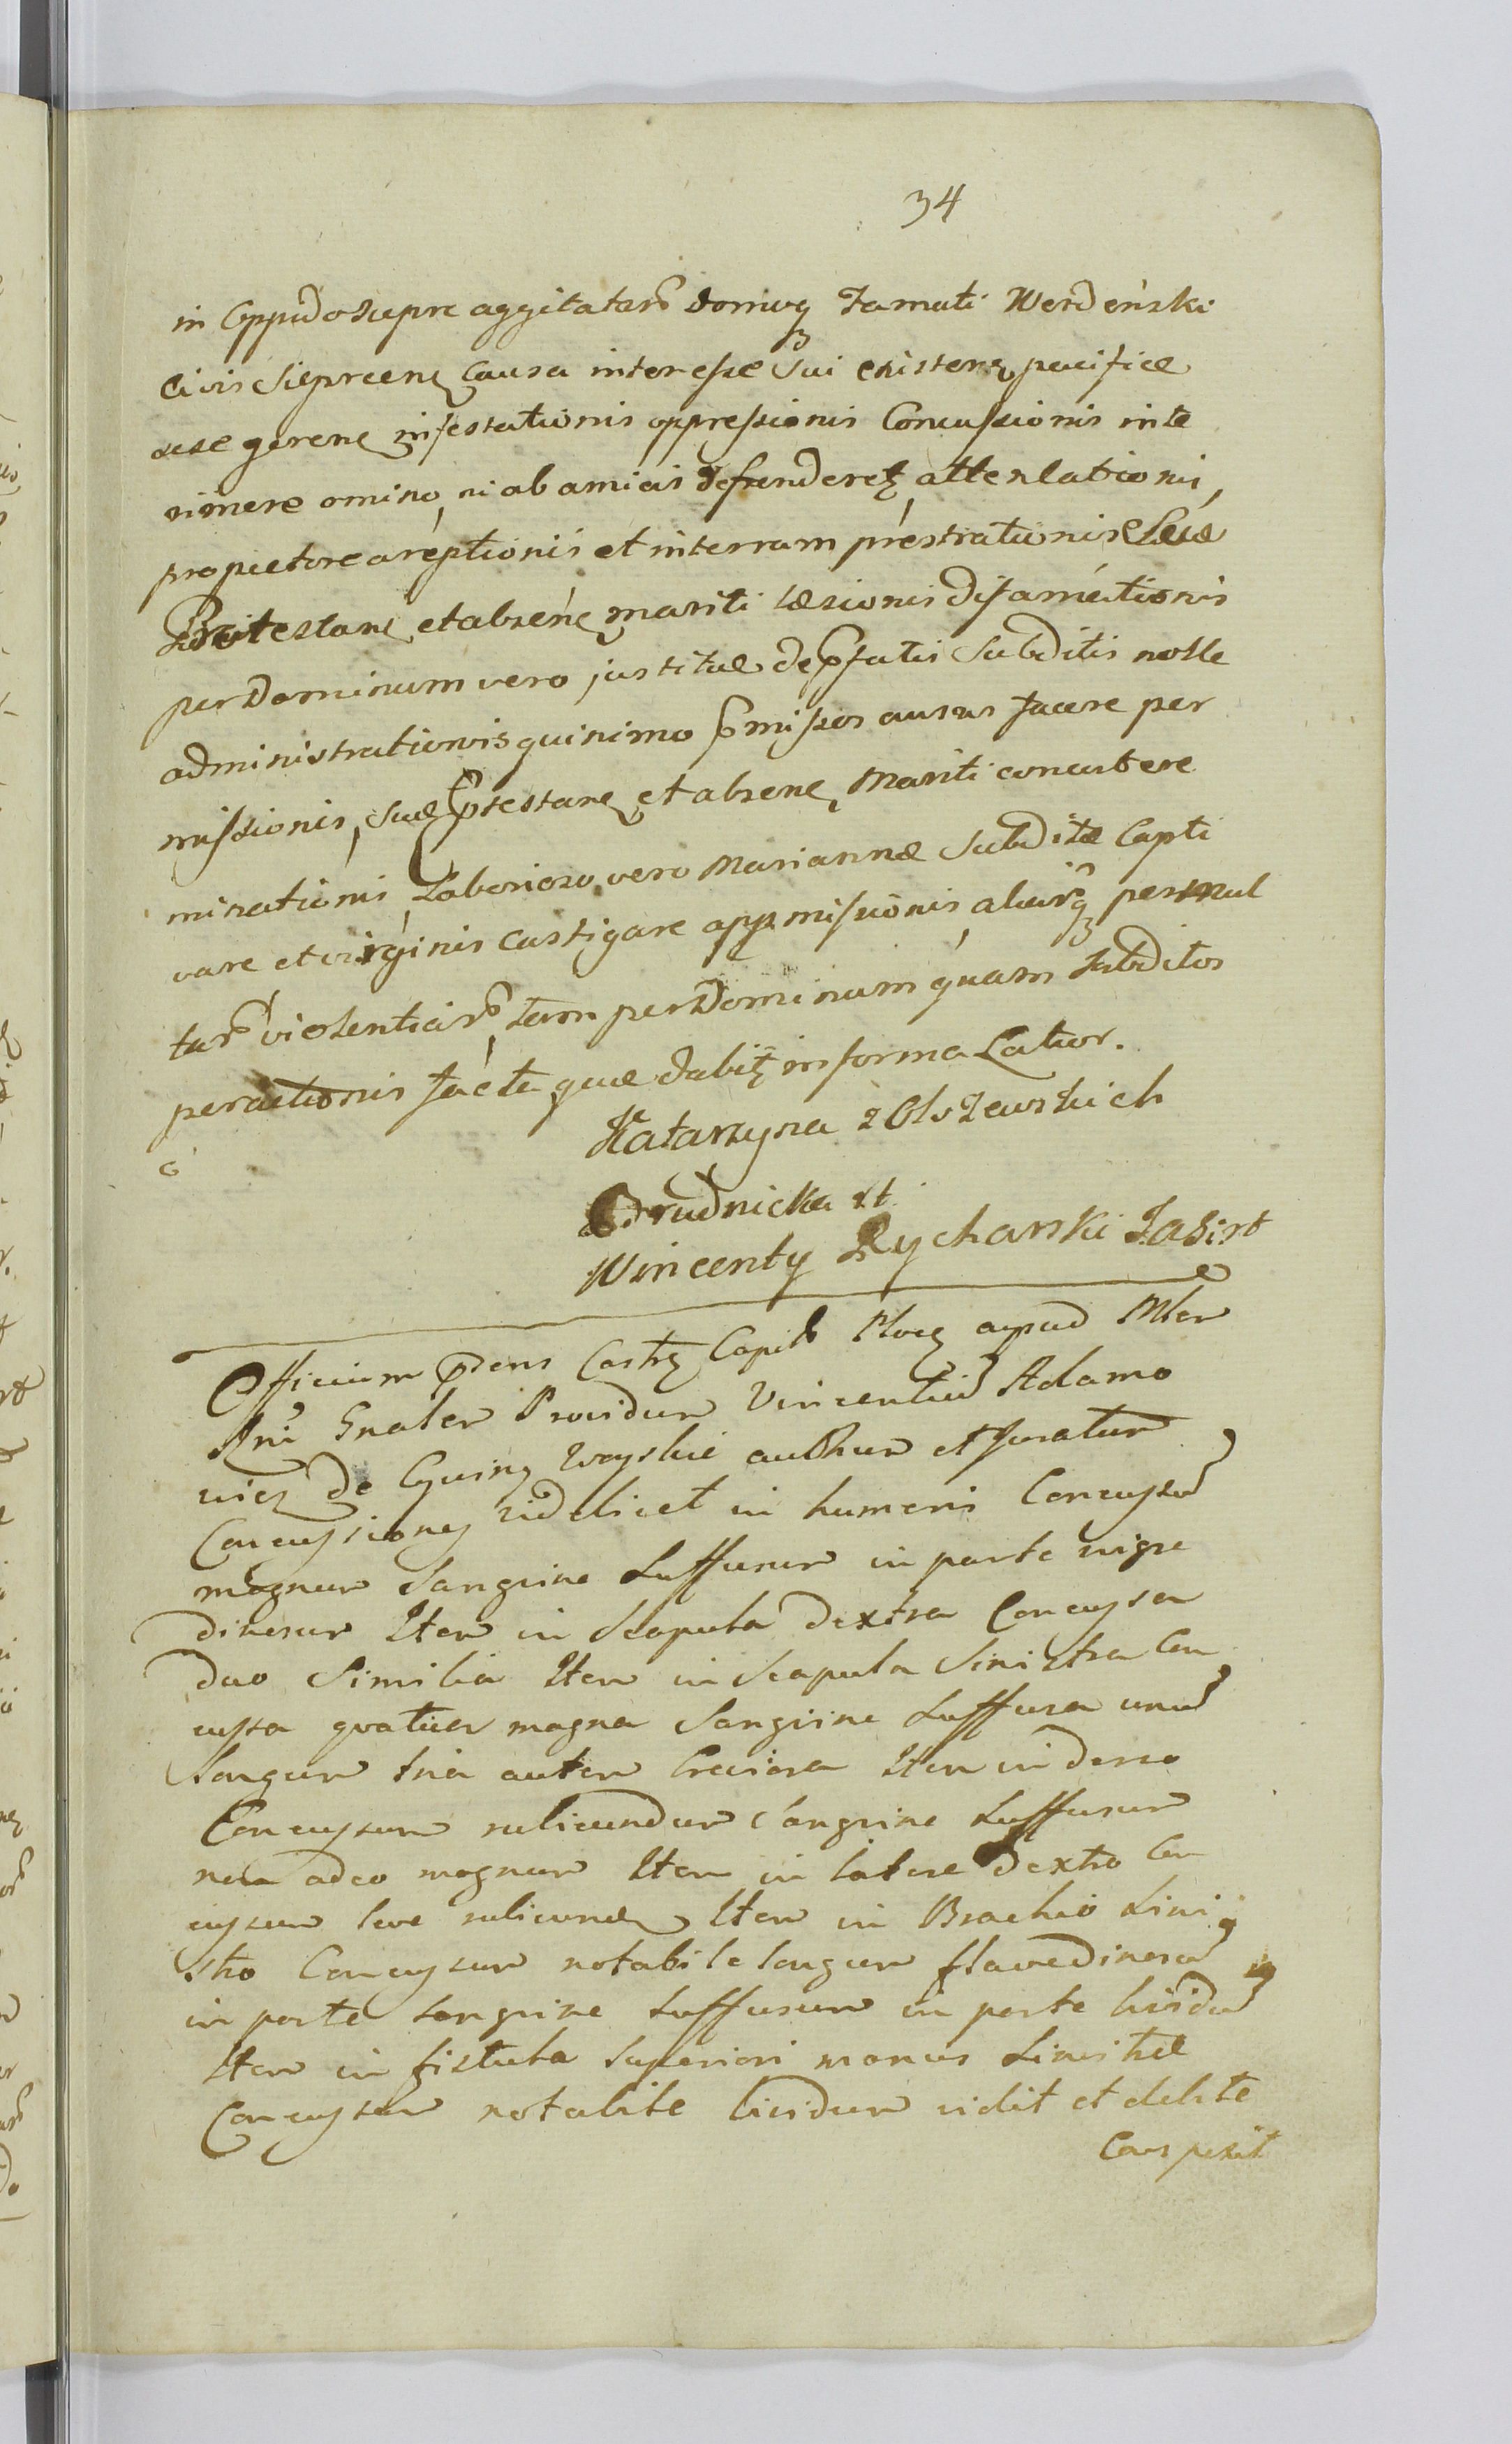 34
in Oppido supre aggitataru domuq Famati Werdeński
Civis Sieprcens Causa interesse sui existens pacifice
sese gerens infestationis oppressionis Concussionis inte
rimere omino, ni ab amicis defenderetz attentationis,
pro pectore areptionis et in terram prestrationis
Protestans et absens mariti læsionis difamationis
per Dominum vero justitiæ de pfatis Subditis nolle
administrationis quinimo pmissos ausus facere per
missionis, suæ ptestans et absens Mariti concutere
minationis, Laboriosa vero Mariannæ Subditæ Capti
vare et virginis castigare appmissionis, aliarq permul
taru violentiaru, tam per Dominum quam Subditos
peractionis facta quæ dabitz in forma Latior.
Katarzyna z Olszewskich
Brudnicka st
Wincenty Rycharski
Officium pdens Castr Capitle Ploc apud Mter
Gnaler Providum Vincentiu Adamo
wicz de
Concussiones videlicet in humeris Concussu
magnum Sanguine Suffusum in parte nigre
dinosum Item in Scapula dextra Concussa
duo Similia Item in Scapula Sinistra Con
cussa quatuor magna Sanguine Suffusa unu
longum tria autem breviora Item in dorso
Concussum rubicundum Sanguine Suffusum
non adeo magnum Item in latere dextro Con
cussum leve rubicund Item in Brachio Sini
stro Concussum notabile longum flavedinosu
in parte Sanguine Suffusum in parte lividu
Item in fistula Superiori manus Sinistræ
Concussum notabile lividum vidit et debite
Conspexit